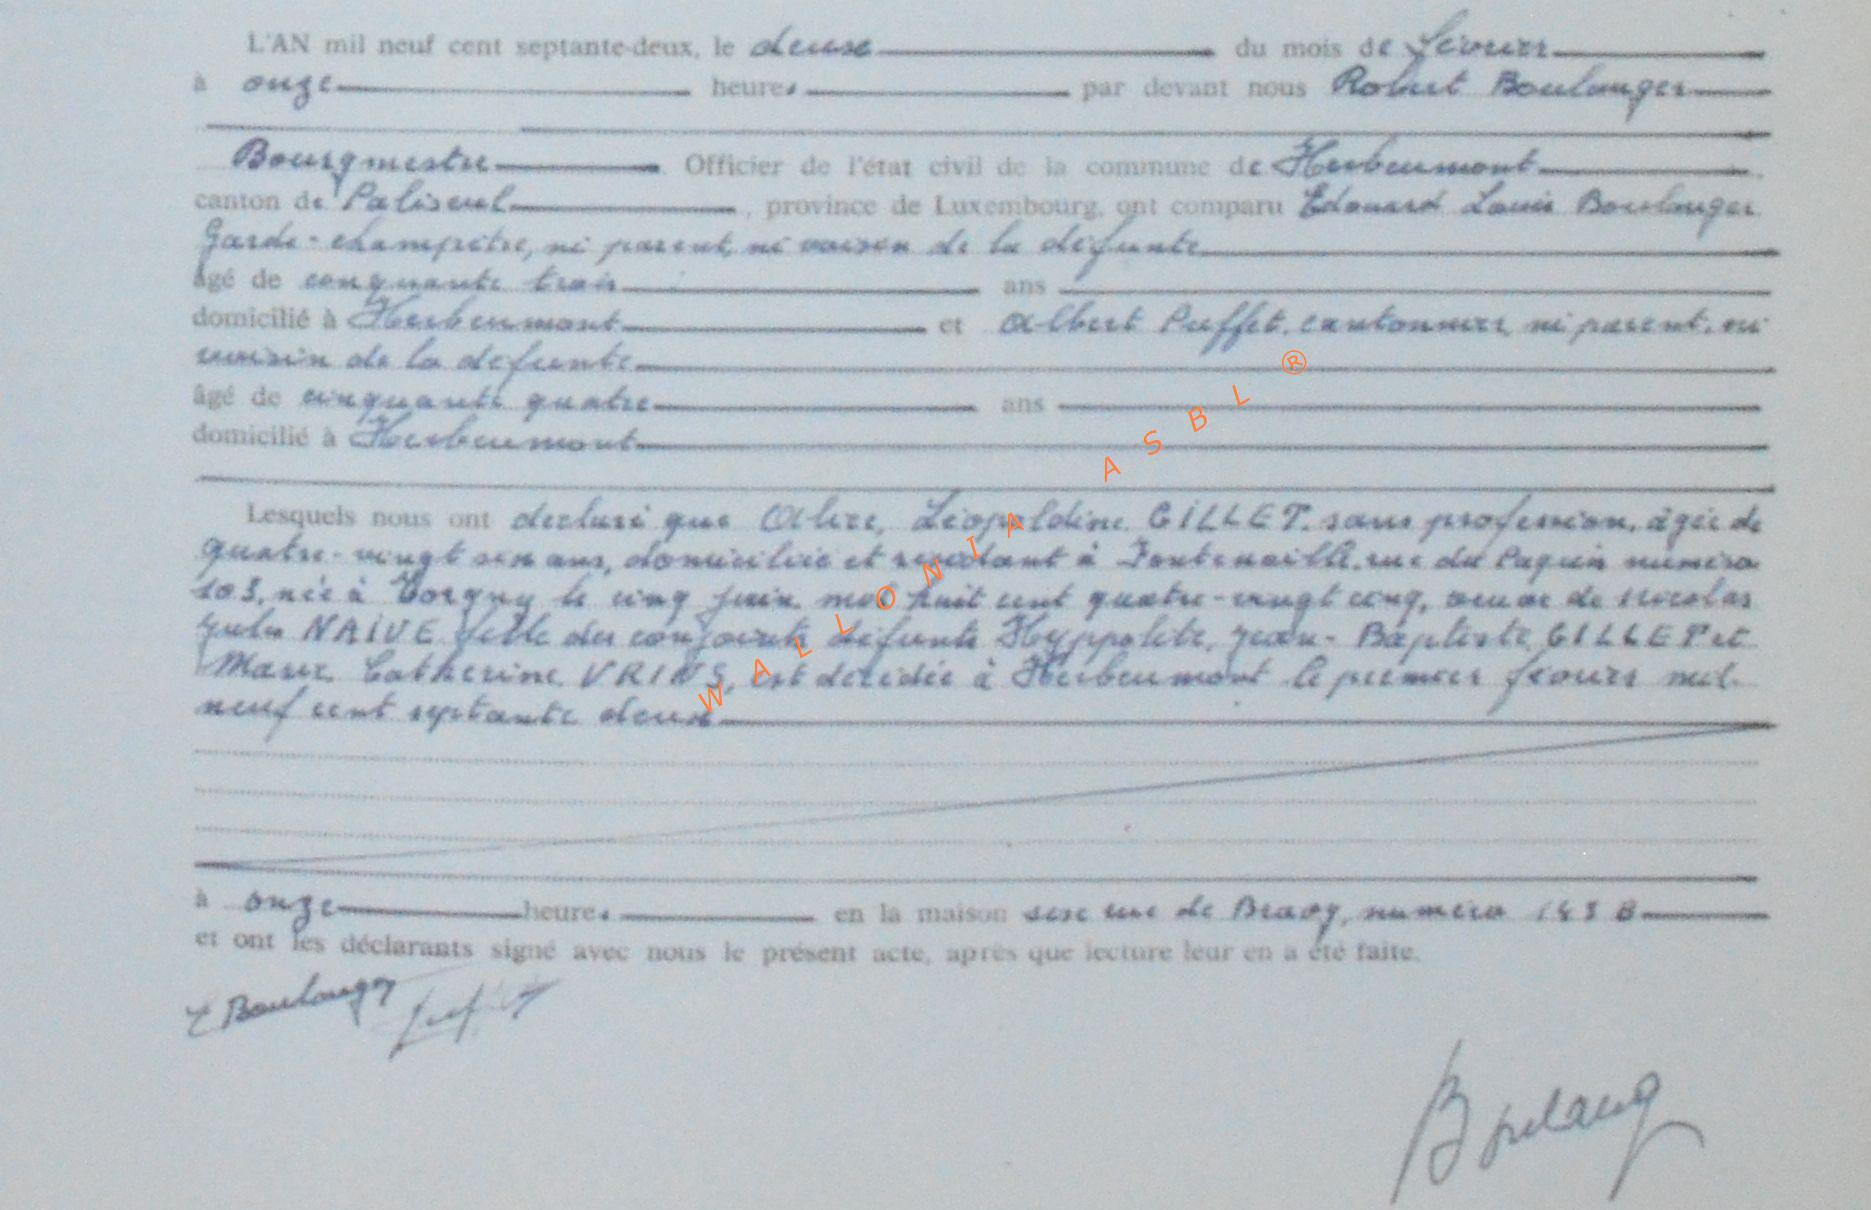 L'AN mil neuf cent septante-deux, le deux du mois de février
à onze heures par devant nous Robert Boulanger
Bourgmestre Officier de l'état civil de la commune de Herbeumont
canton de Paliseul, province de Luxembourg, ont comparu Edouard Louis Boulanger
Garde-champêtre, ni parent, ni voisin de la défunte
âgé de cinquante trois ans
domicilié à Herbeumont et Albert Puffet, cantonnier, ni parent, ni
voisin de la défunte
âgé de cinquante quatre ans
domicilié à Herbeumont
Lesquels nous ont déclaré que Alice, Léopoldine GILLET, sans profession, âgée de
quatre-vingt six ans, domiciliée et résidant à Fontenoille, rue du Paquis numéro
103, née à Torgny le cinq juin mil huit cent quatre-vingt cinq, veuve de Nicolas
Jules NAIVE fille des conjoints défunts Hyppolite, Jean-Baptiste GILLET et
Marie Catherine VRINS, est décédée à Herbeumont le premier février mil
neuf cent septante deux
à onze heures en la maison sise rue de Bravy, numéro 143 B
et ont les déclarants signé avec nous le présent acte, après que lecture leur en a été faite.
E Boulanger
Boulang
WALLONIA ASBL ®